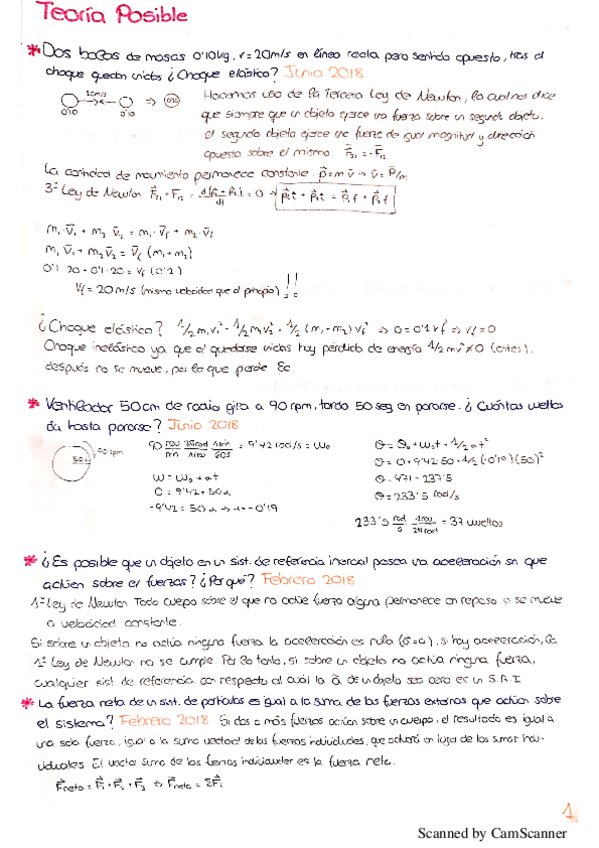 Teoría Posible
* Dos bolas de masas 0'10kg, v=20m/s en línea recta pero sentido opuesto, tras el
choque quedan unidas ¿Choque elástico? Junio 2018
20m/s
0'10 0'10
Hacemos uso de la Tercera Ley de Newton, la cual nos dice
que siempre que un objeto ejerce una fuerza sobre un segundo objeto,
el segundo objeto ejerce una fuerza de igual magnitud y dirección
opuesta sobre el mismo.
La cantidad de movimiento permanece constante. p⃗=m v⃗ → v⃗ = P⃗/m
3ª Ley de Newton
m₁·v⃗₁ + m₂ v⃗₂ = m₁·v⃗f + m₂·v⃗f
m₁ v⃗₁ + m₂ v⃗₂ = v⃗f (m₁+m₂)
0'1·20 - 0'1·20 = vf (0'2)
Vf = 20m/s (misma velocidad que al principio) !!
¿Choque elástico?
Choque inelástico ya que al quedarse unidas hay pérdida de energía 1/2 mv²≠0 (antes),
después no se mueve, por lo que pierde Ec.
* Ventilador 50cm de radio gira a 90 rpm, tarda 50 seg en pararse. ¿Cuántas vueltas
da hasta pararse? Junio 2018
50 90 rpm
90 rev/min · 2π rad/1 rev · 1 min/60 s = 9'42 rad/s = ω₀
ω = ω₀ + αt
0 = 9'42 + 50α
-9'42 = 50α → α = -0'19
θ = θ₀ + ω₀t + 1/2 αt²
θ = 0 + 9'42·50 + 1/2 (-0'19)(50)²
θ = 471 - 237'5
θ = 233'5 rad/s
233'5 rad/s · 1 rev/2π rad = 37 vueltas
* ¿Es posible que un objeto en un sist. de referencia inercial posea una aceleración sin que
actúen sobre él fuerzas? ¿Por qué? Febrero 2018
1ª Ley de Newton. Todo cuerpo sobre el que no actúe fuerza alguna permanece en reposo o se mueve
a velocidad constante.
Si sobre un objeto no actúa ninguna fuerza la aceleración es nula, si hay aceleración, la
1ª Ley de Newton no se cumple. Por lo tanto, si sobre un objeto no actúa ninguna fuerza,
cualquier sist. de referencia con respecto al cuál la a⃗ de un objeto sea cero es un S.R.I
* La fuerza neta de un sist. de partículas es igual a la suma de las fuerzas externas que actúan sobre
el sistema? Febrero 2018 Si dos o más fuerzas actúan sobre un cuerpo, el resultado es igual a
una sola fuerza, igual a la suma vectorial de las fuerzas individuales, que actuará en lugar de las sumas indi-
viduales. El vector suma de las fuerzas individuales es la fuerza neta.
F⃗neta = F⃗₁ + F⃗₂ + F⃗₃ ⇒ F⃗neta = ΣF⃗i
1
Scanned by CamScanner